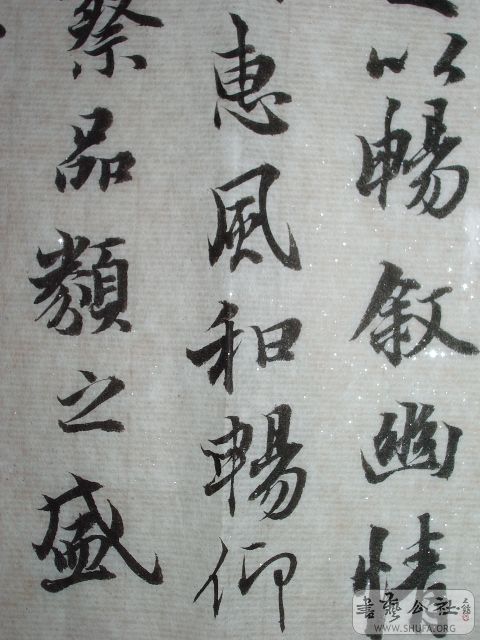 以暢叙幽情
惠風和暢仰
察品類之盛
書藝公社
WWW.SHUFA.ORG